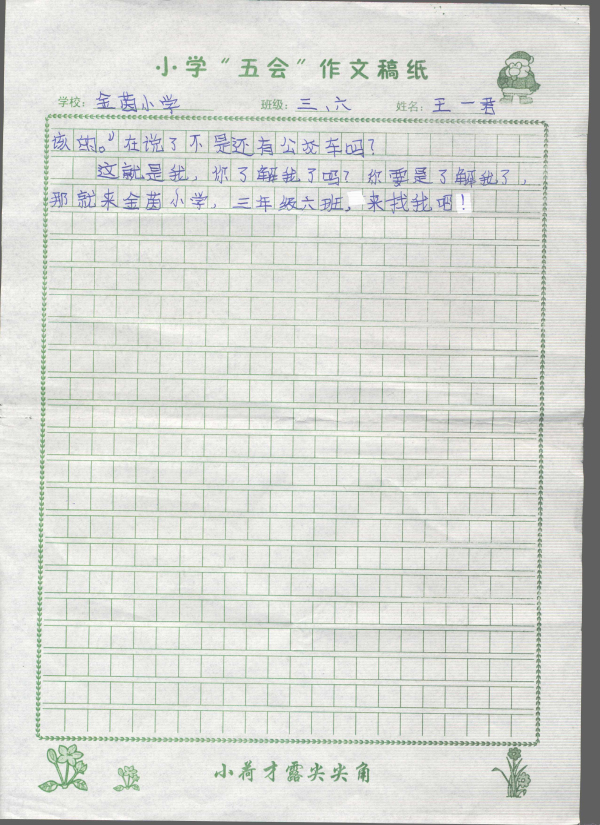 小学“五会”作文稿纸
学校：金茵小学 班级：三、六 姓名：王一君
该的。”在说了不是还有公交车吗？
这就是我，你了解我了吗？你要是了解我了，
那就来金茵小学，三年级六班，来找我吧！
小荷才露尖尖角